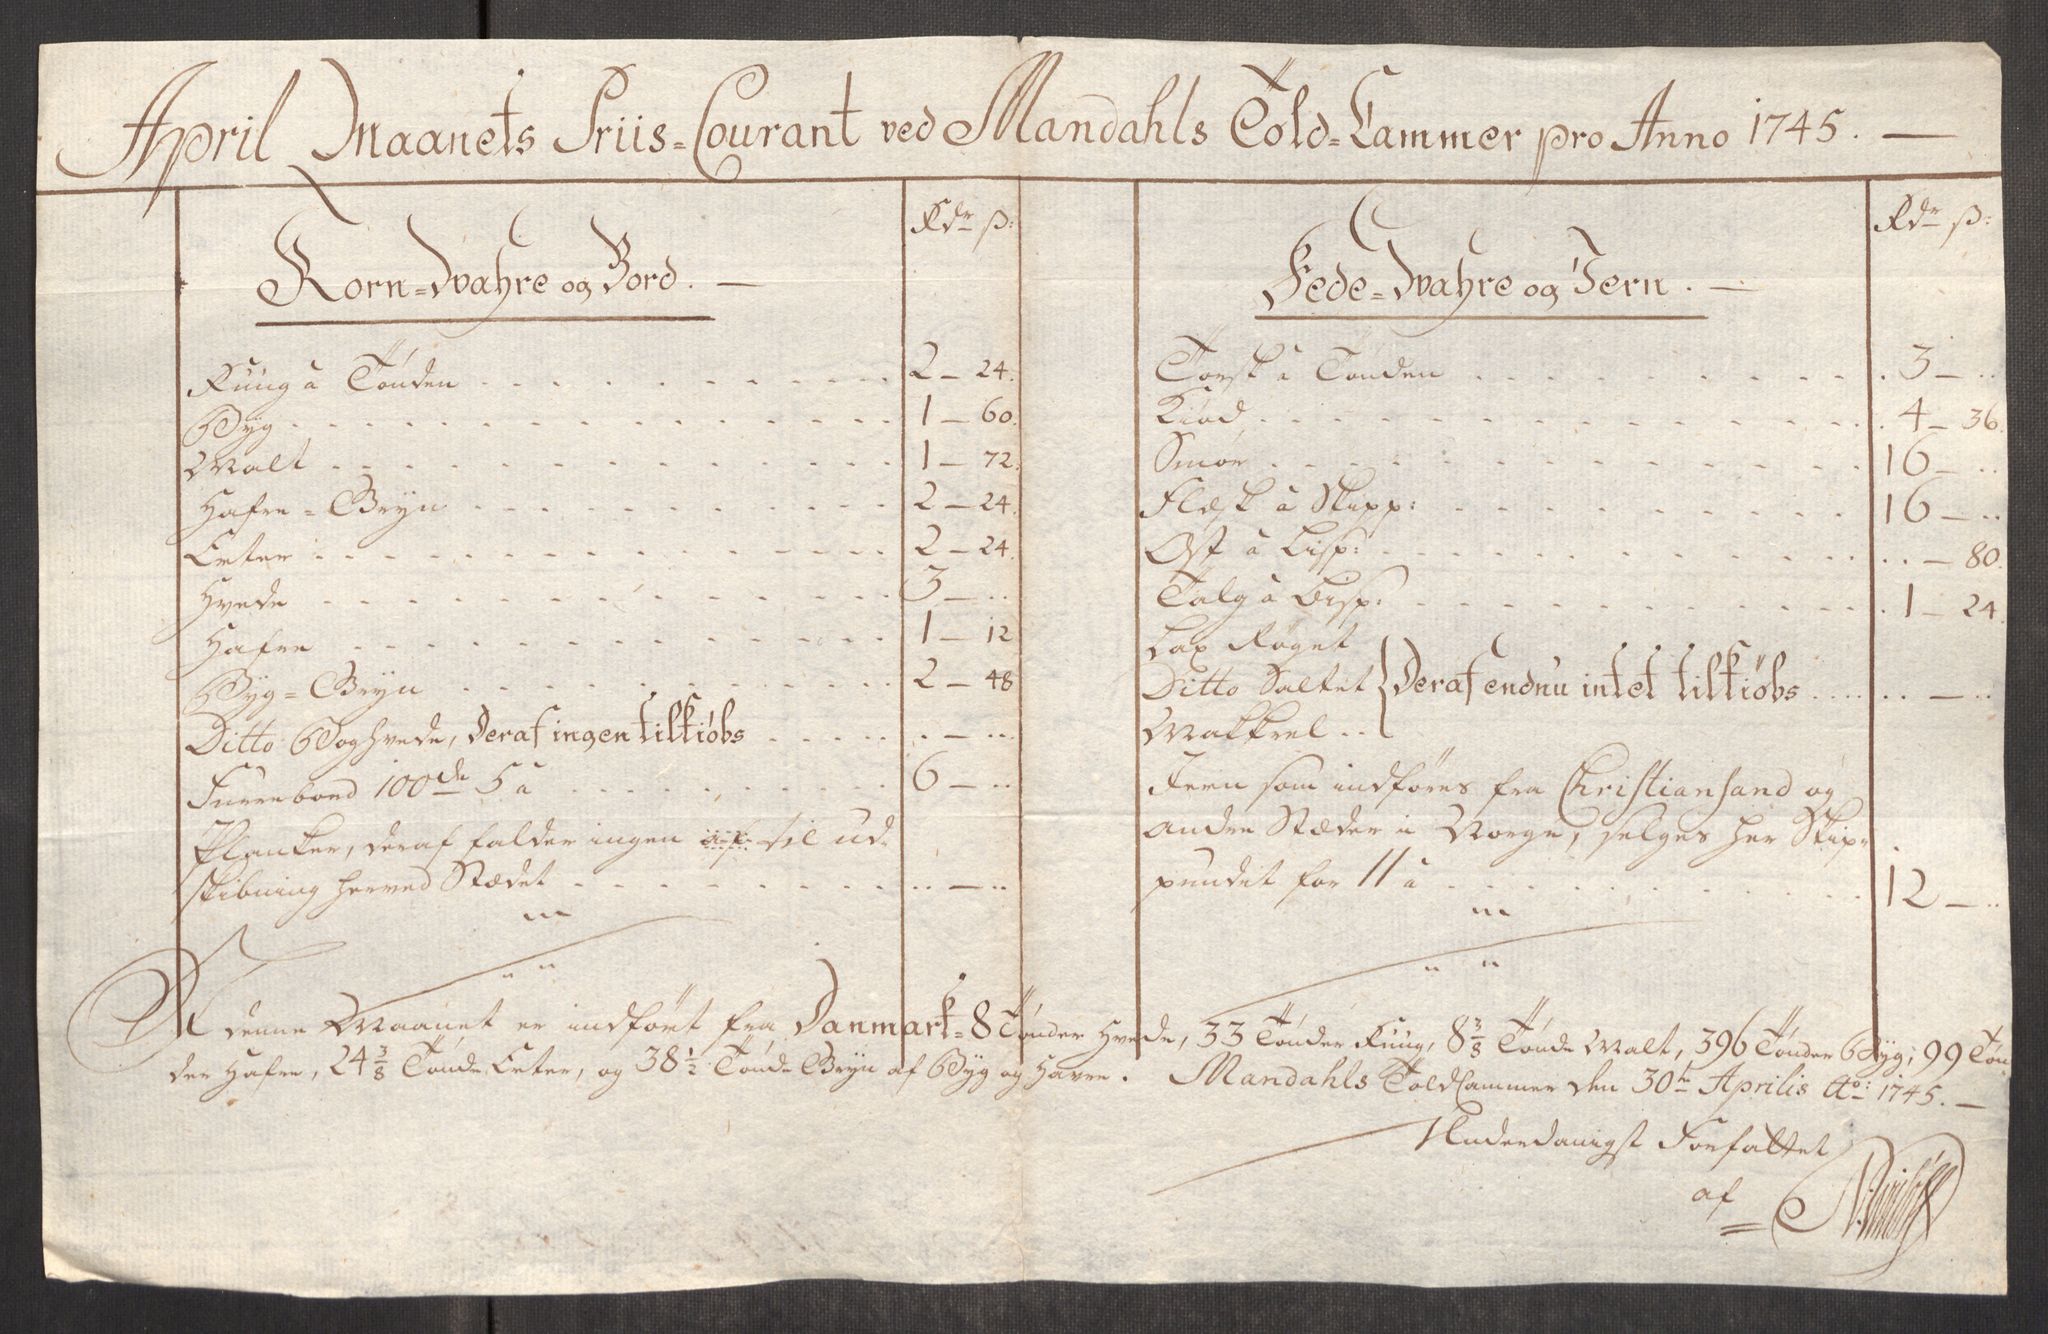 April Maanets Priis=Courant ved Mandahls Told=Cammer pro Anno 1745. —
Rdr ß:
Korn=Wahre og Bord. —
Rüug â Tönden 2 — 24.
Byg 1 — 60.
Malt 1 — 72.
Hafre=Gryn 2 — 24.
Erter 2 — 24.
Hvede 3 — ..
Hafre 1 — 12
Byg=Gryn 2 — 48
Ditto Boghvede, deraf ingen tilkiøbs .. — ..
Furrebord 100de 5 â 6 — ..
Planker, deraf falder ingen af til ud-
skibning herved Stædet .. — ..
Rdr ß:
Fede=Wahre og Jern. —
Torsk â Tönden 3 — ..
Kiød 4 — 36.
Smör 16 — ..
Flesk â Skipp: 16 — ..
Ost â Lisp: .. — 80.
Talg â Lisp: 1 — 24.
Lax Røget
Ditto Saltet } Deraf endnu intet tilkiøbs .. — ..
Makkrel ..
Jern som indføres fra Christiansand og
andre Stæder i Norge, selges her Skip-
pundet for 11 â 12 — ..
I denne Maanet er indført fra Danmark= 8 Tønder Hvede, 33 Tønder Rüug, 8 3/8 Tønde Malt, 396 Tønder Byg, 99 Tøn-
der Hafre, 24 3/8 Tønde Erter, og 38 1/2 Tønde Gryn af Byg og Havre. Mandahls Told Cammer den 30te Aprilis Ao: 1745. —
Underdanigst Forfattet
af